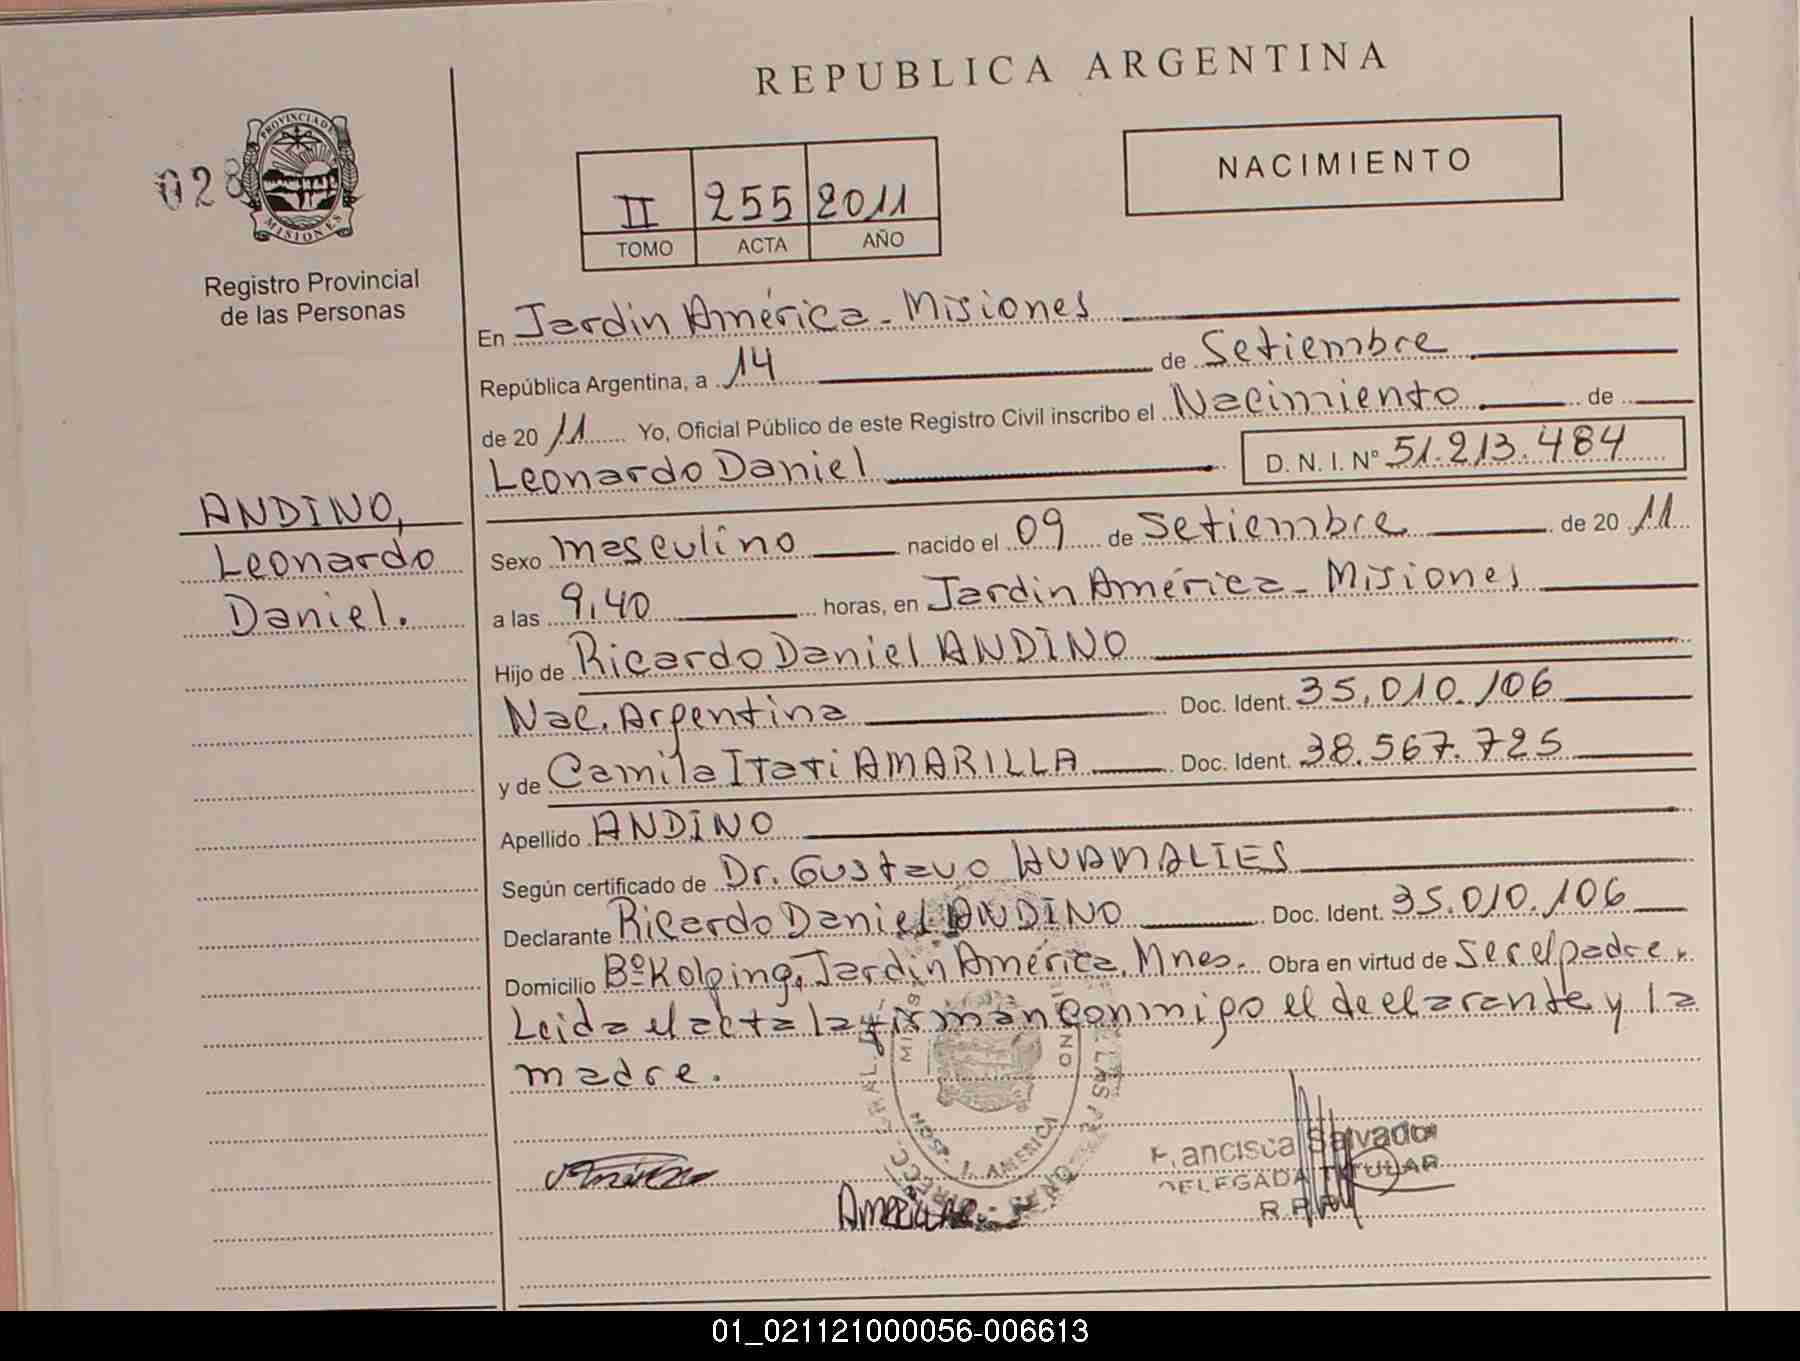 REPUBLICA ARGENTINA
028
PROVINCIA DE MISIONES
Registro Provincial
de las Personas
II 255 2011
TOMO ACTA AÑO
NACIMIENTO
En Jardin América - Misiones
República Argentina, a 14 de Setiembre
de 20 11 Yo, Oficial Público de este Registro Civil inscribo el Nacimiento de
Leonardo Daniel D. N. I. Nº 51.213.484
ANDINO,
Leonardo
Daniel.
Sexo masculino nacido el 09 de Setiembre de 20 11
a las 9,40 horas, en Jardin América - Misiones
Hijo de Ricardo Daniel ANDINO
Nac. Argentina Doc. Ident. 35.010.106
y de Camila Itati AMARILLA Doc. Ident. 38.567.725
Apellido ANDINO
Según certificado de Dr. Gustavo HUAMALIES
Declarante Ricardo Daniel ANDINO Doc. Ident. 35.010.106
Domicilio Bº Kolping, Jardin América, Mnes. Obra en virtud de ser el padre.
Leida el acta la firman conmigo el declarante y la
madre.
J. AMERICA
Francisca Salvador
DELEGADA TITULAR
R.P.P.
01_021121000056-006613